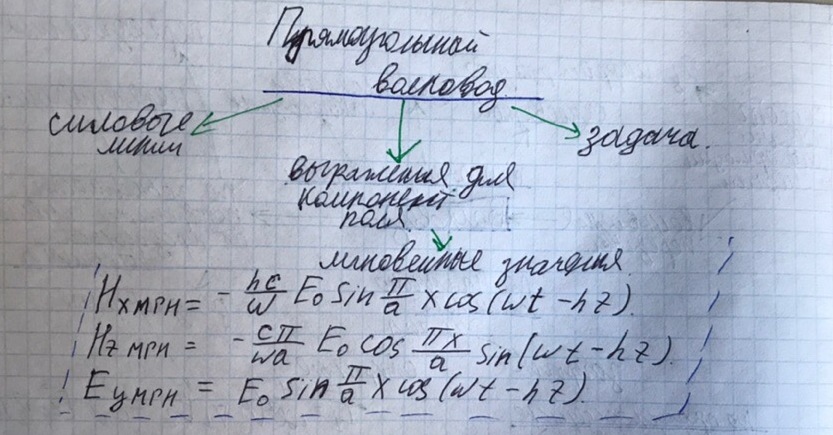 Прямоугольный
волновод
силовые
линии
задача.
выражения для
компонент
поля
мгновенные значения
H_{x мгн} = - \frac{hc}{ω} E_0 sin \frac{π}{a} x cos(ωt - hz)
H_{z мгн} = - \frac{cπ}{ωa} E_0 cos \frac{πx}{a} sin(ωt - hz)
E_{y мгн} = E_0 sin \frac{π}{a} x cos(ωt - hz)